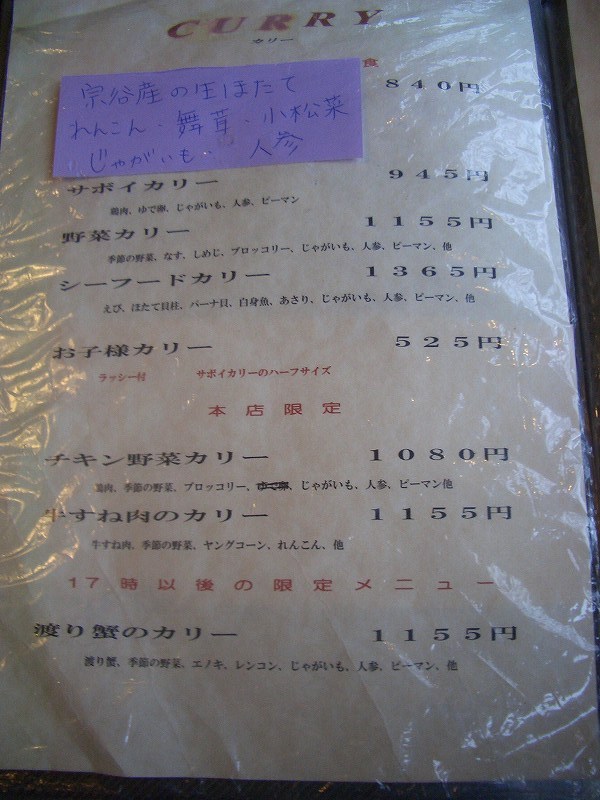 CURRY
カリー
食
840円
宗谷産の生ほたて
れんこん、舞茸、小松菜
じゃがいも、人参
サボイカリー 945円
鶏肉、ゆで卵、じゃがいも、人参、ピーマン
野菜カリー 1155円
季節の野菜、なす、しめじ、ブロッコリー、じゃがいも、人参、ピーマン、他
シーフードカリー 1365円
えび、ほたて貝柱、パーナ貝、白身魚、あさり、じゃがいも、人参、ピーマン、他
お子様カリー 525円
ラッシー付 サボイカリーのハーフサイズ
本店限定
チキン野菜カリー 1080円
鶏肉、季節の野菜、ブロッコリー、じゃがいも、人参、ピーマン他
牛すね肉のカリー 1155円
牛すね肉、季節の野菜、ヤングコーン、れんこん、他
17時以後の限定メニュー
渡り蟹のカリー 1155円
渡り蟹、季節の野菜、エノキ、レンコン、じゃがいも、人参、ピーマン、他